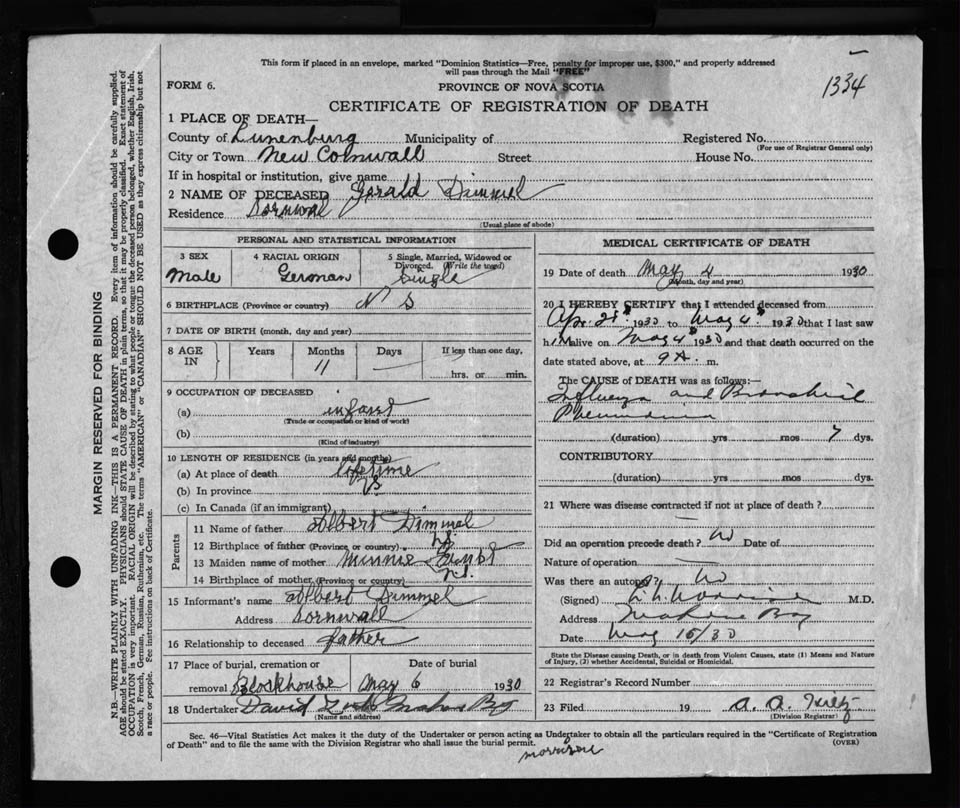 This form if placed in an envelope, marked "Dominion Statistics—Free, penalty for improper use, $300," and properly addressed
will pass through the Mail "FREE"
1334
FORM 6.
PROVINCE OF NOVA SCOTIA
CERTIFICATE OF REGISTRATION OF DEATH
1 PLACE OF DEATH—
County of Lunenburg Municipality of Registered No.
(For use of Registrar General only)
City or Town New Cornwall Street House No.
If in hospital or institution, give name
2 NAME OF DECEASED Gerald Dimmel
Residence Cornwall
(Usual place of abode)
PERSONAL AND STATISTICAL INFORMATION
3 SEX 4 RACIAL ORIGIN 5 Single, Married, Widowed or
Divorced. (Write the word)
Male German Single
6 BIRTHPLACE (Province or country) N S
7 DATE OF BIRTH (month, day and year)
8 AGE IN Years Months Days If less than one day,
11 — hrs. or min.
9 OCCUPATION OF DECEASED
(a) infant
(Trade or occupation or kind of work)
(b)
(Kind of industry)
10 LENGTH OF RESIDENCE (in years and months)
(a) At place of death lifetime
(b) In province
(c) In Canada (if an immigrant)
Parents
11 Name of father Albert Dimmel
12 Birthplace of father (Province or country) NS
13 Maiden name of mother Minnie
14 Birthplace of mother (Province or country) N.S.
15 Informant's name Albert Dimmel
Address Cornwall
16 Relationship to deceased father
17 Place of burial, cremation or Date of burial
removal Blockhouse May 6 1930
18 Undertaker David Mahone Bay
(Name and address)
MEDICAL CERTIFICATE OF DEATH
19 Date of death May 4 1930
(Month, day and year)
20 I HEREBY CERTIFY that I attended deceased from
Apr. 28th 1930 to May 4th 1930 that I last saw
him alive on May 4th 1930 and that death occurred on the
date stated above, at 9 A. m.
The CAUSE of DEATH was as follows:—
Influenza and Bronchial
Pneumonia
(duration) yrs mos 7 dys.
CONTRIBUTORY
(duration) yrs. mos. dys.
21 Where was disease contracted if not at place of death?
—
Did an operation precede death? No Date of
Nature of operation —
Was there an autopsy? No
(Signed) M.D.
Address Mahone Bay
Date May 15/30
State the Disease causing Death, or in death from Violent Causes, state (1) Means and Nature
of Injury, (2) whether Accidental, Suicidal or Homicidal.
22 Registrar's Record Number
23 Filed 19 A. A.
(Division Registrar)
Sec. 46—Vital Statistics Act makes it the duty of the Undertaker or person acting as Undertaker to obtain all the particulars required in the "Certificate of Registration
of Death" and to file the same with the Division Registrar who shall issue the burial permit.
(OVER)
morrison
MARGIN RESERVED FOR BINDING
N.B.—WRITE PLAINLY WITH UNFADING INK—THIS IS A PERMANENT RECORD. Every item of information should be carefully supplied.
AGE should be stated EXACTLY. PHYSICIANS should STATE CAUSE OF DEATH in plain terms, so that it may be properly classified. Exact statement of
OCCUPATION is very important. RACIAL ORIGIN will be described by stating to what people or tongue the deceased person belonged, whether English, Irish,
Scotch, French, German, Russian, Ruthenian, etc. The terms "AMERICAN" or "CANADIAN" SHOULD NOT BE USED as they express citizenship but not
a race or people. See instructions on back of Certificate.